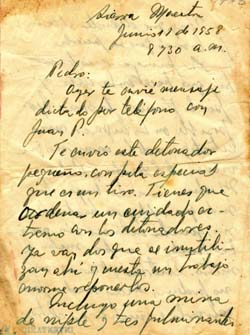 Sierra Maestra
Junio 18 de 1958
8 y 30 a.m.
Pedro:
Ayer te envié mensaje
dictado por teléfono con
Juan P.
Te envío este detonador
pequeño, con pila especial
que es un tiro. Tienes que
ordenar un cuidado ex-
tremo con los detonadores.
Ya van dos que se inutili-
zan ahí y cuesta un trabajo
enorme reponerlos.
Incluyo una mina
de niple y tres fulminantes